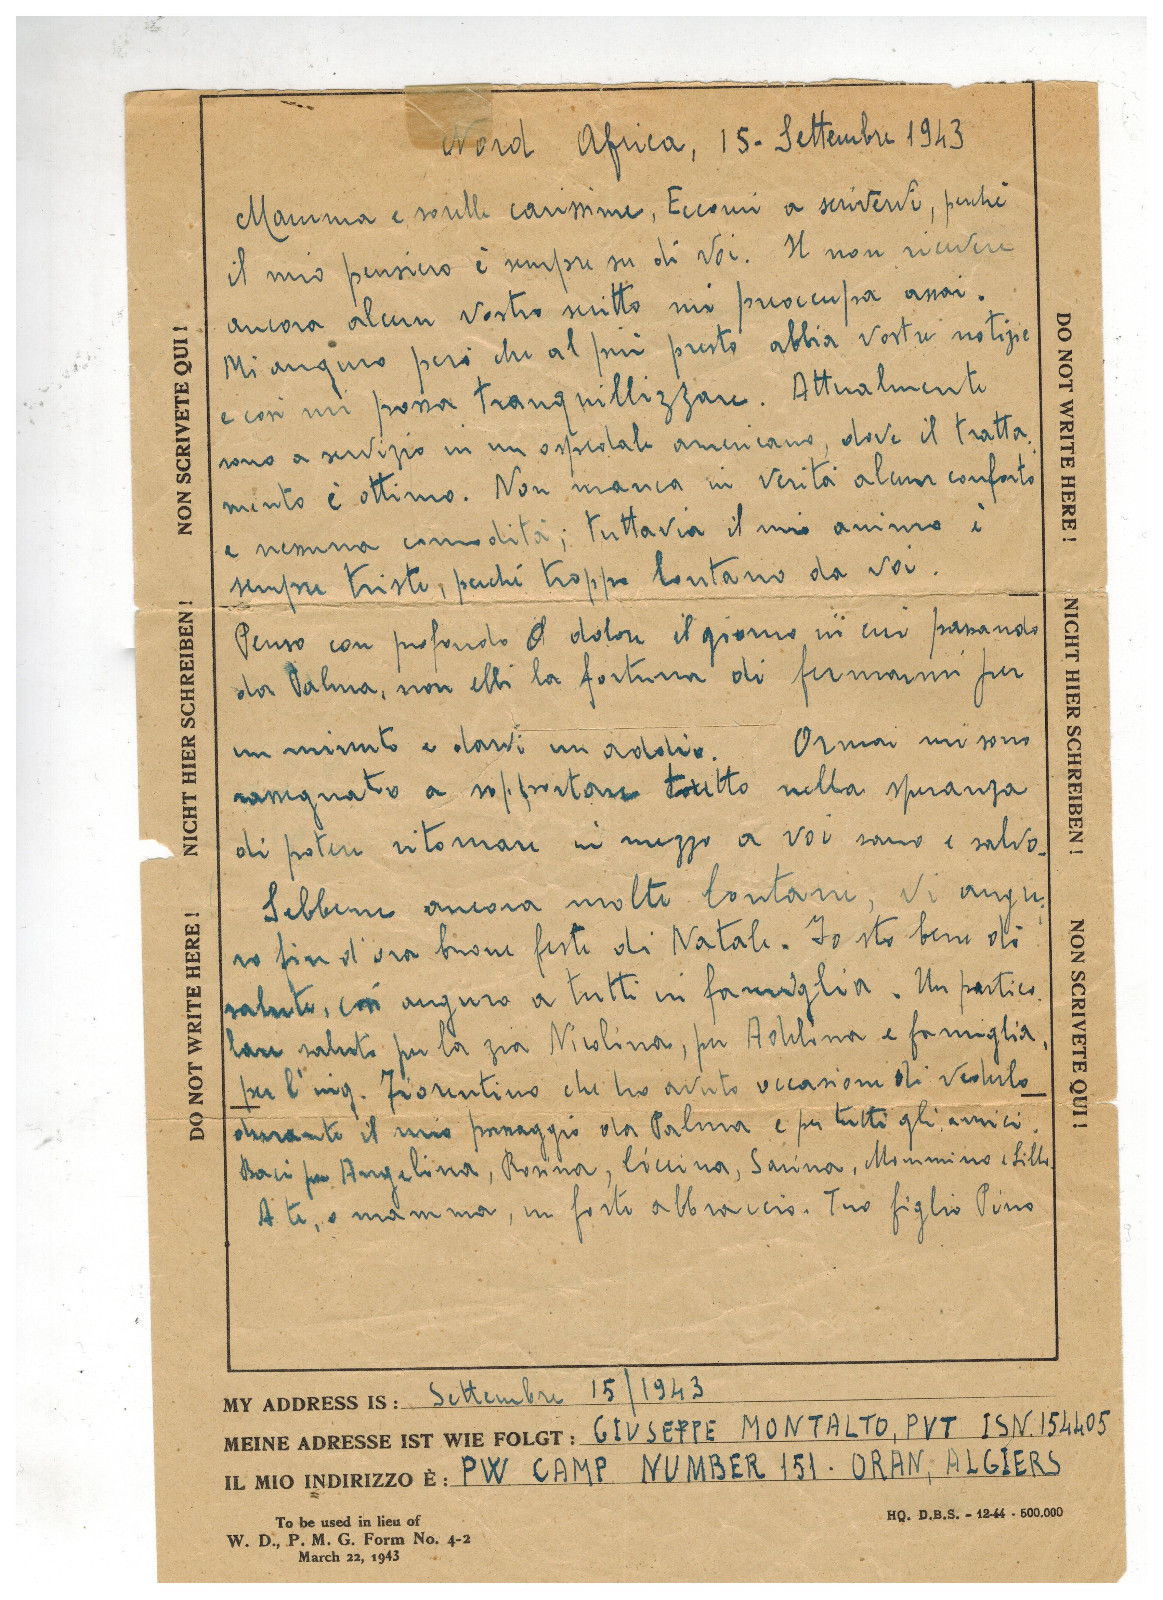 Nord Africa, 15- Settembre 1943
Mamma e sorelle carissime, Eccomi a scrivervi, perché
il mio pensiero è sempre su di voi. Il non ricevere
ancora alcun vostro scritto mi preoccupa assai.
Mi auguro però che al più presto abbia vostre notizie
e così mi possa tranquillizzare. Attualmente
sono a servizio in un ospedale americano, dove il tratta
mento è ottimo. Non manca in verità alcun conforto
e nessuna comodità; tuttavia il mio animo è
sempre triste, perché troppo lontano da voi.
Penso con profondo dolore il giorno in cui passando
da Palma, non ebbi la fortuna di fermarmi per
un minuto e darvi un addio. Ormai mi sono
rassegnato a sopportare tutto nella speranza
di potere ritornare in mezzo a voi sano e salvo.
Sebbene ancora molto lontane, vi augu
ro fin d'ora buone feste di Natale. Io sto bene di
salute, così auguro a tutti in famiglia. Un partico
lare saluto per la zia Nicolina, per Adelina e famiglia,
per l'ing. Fiorentino che ho avuto occasione di vederlo
durante il mio passaggio da Palma e per tutti gli amici.
Baci per Angelina, Rosina, Ciccina, Sarina, Mommino e Lillo.
A te, o mamma, un forte abbraccio. Tuo figlio Pino
NON SCRIVETE QUI !
NICHT HIER SCHREIBEN !
DO NOT WRITE HERE !
DO NOT WRITE HERE !
NICHT HIER SCHREIBEN !
NON SCRIVETE QUI !
MY ADDRESS IS : Settembre 15/1943
MEINE ADRESSE IST WIE FOLGT : GIUSEPPE MONTALTO, PVT ISN. 154405
IL MIO INDIRIZZO È : PW CAMP NUMBER 151 - ORAN, ALGIERS
To be used in lieu of
W. D., P. M. G. Form No. 4-2
March 22, 1943
HQ. D.B.S. - 12-44 - 500.000